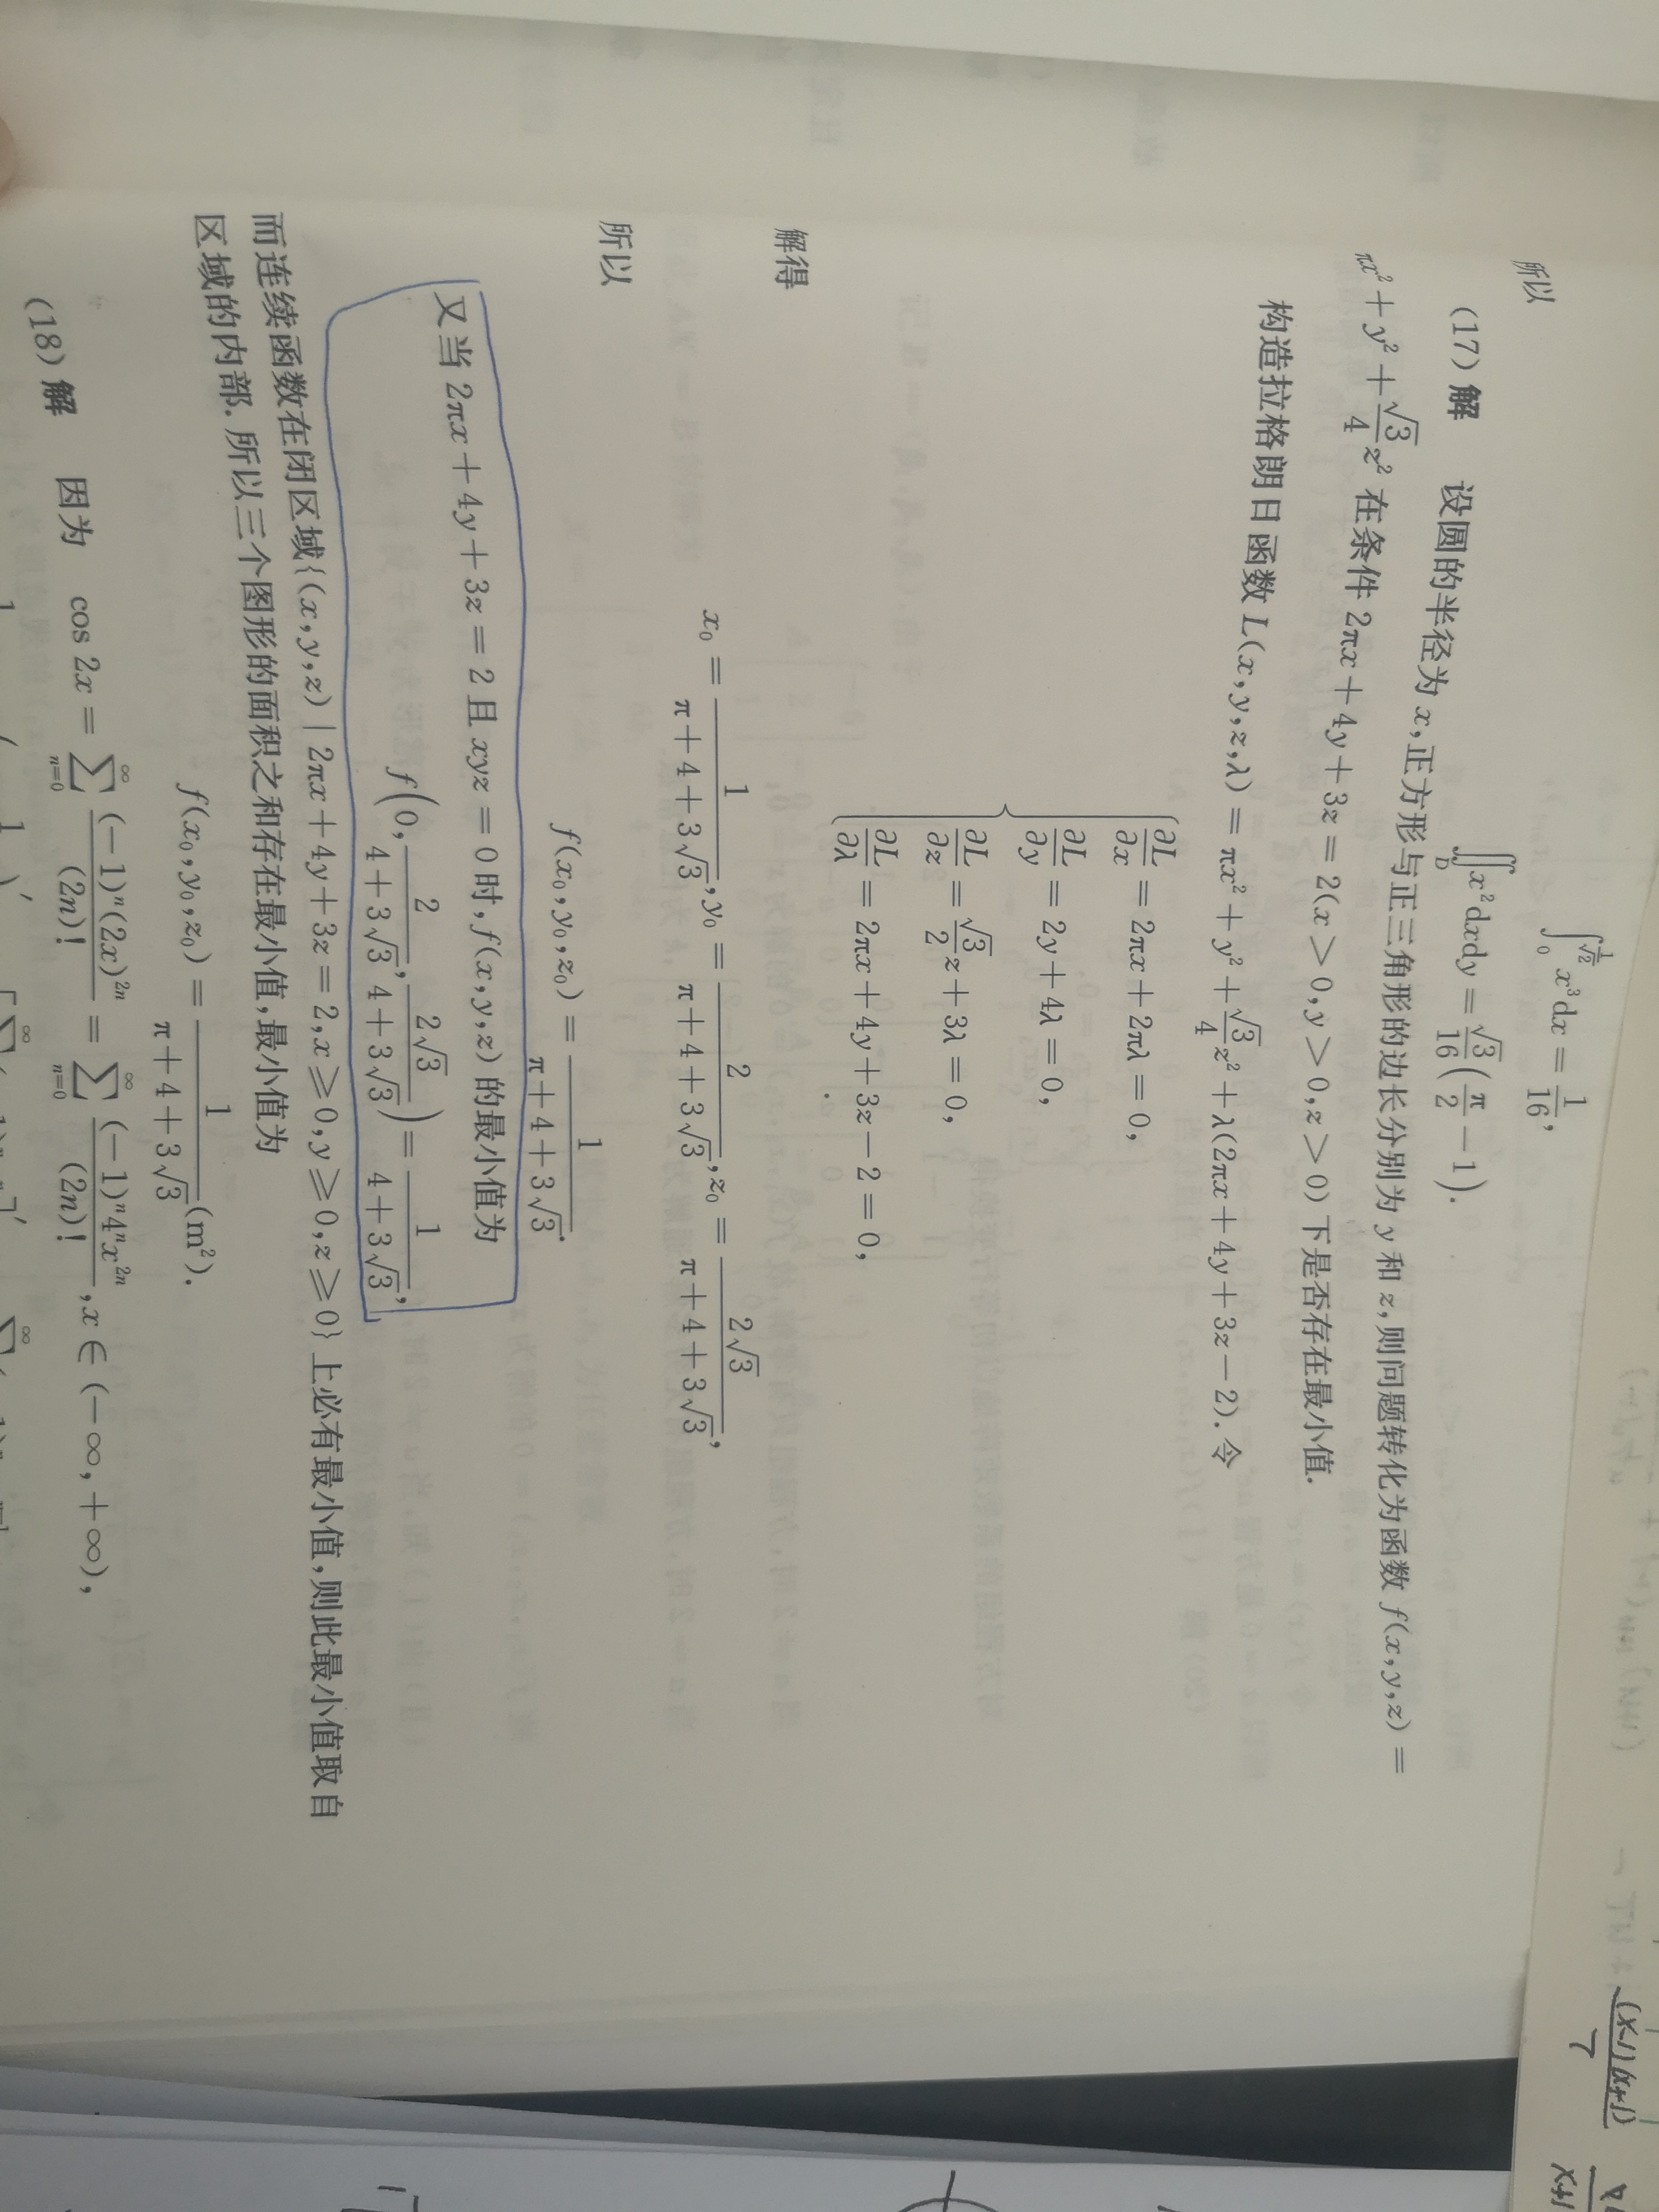 所以
∫₀^{1/√2} x³dx = 1/16,
∬_D x²dxdy = √3/16(π/2 − 1).
(17) 解 设圆的半径为 x,正方形与正三角形的边长分别为 y 和 z,则问题转化为函数 f(x,y,z) =
πx² + y² + √3/4 z² 在条件 2πx + 4y + 3z = 2(x > 0,y > 0,z > 0) 下是否存在最小值.
构造拉格朗日函数 L(x,y,z,λ) = πx² + y² + √3/4 z² + λ(2πx + 4y + 3z − 2). 令
∂L/∂x = 2πx + 2πλ = 0,
∂L/∂y = 2y + 4λ = 0,
∂L/∂z = √3/2 z + 3λ = 0,
∂L/∂λ = 2πx + 4y + 3z − 2 = 0,
解得
x₀ = 1/(π + 4 + 3√3), y₀ = 2/(π + 4 + 3√3), z₀ = 2√3/(π + 4 + 3√3),
所以
f(x₀,y₀,z₀) = 1/(π + 4 + 3√3).
又当 2πx + 4y + 3z = 2 且 xyz = 0 时,f(x,y,z) 的最小值为
f(0, 2/(4 + 3√3), 2√3/(4 + 3√3)) = 1/(4 + 3√3),
而连续函数在闭区域{(x,y,z) | 2πx + 4y + 3z = 2,x ≥ 0,y ≥ 0,z ≥ 0} 上必有最小值,则此最小值取自
区域的内部. 所以三个图形的面积之和存在最小值,最小值为
f(x₀,y₀,z₀) = 1/(π + 4 + 3√3) (m²).
(18) 解 因为 cos 2x = ∑_{n=0}^{∞} (−1)ⁿ(2x)²ⁿ/(2n)! = ∑_{n=0}^{∞} (−1)ⁿ4ⁿx²ⁿ/(2n)!, x ∈ (−∞, +∞),